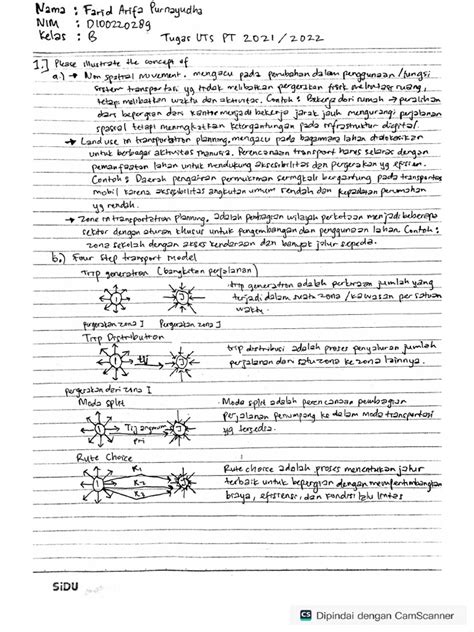 Nama : Farid Arifa Purnayudha
NIM : D100220289
Kelas : B
Tugas UTS PT 2021/2022
1.] Please illustrate the concept of
a.) → Non spatial movement. mengacu pada perubahan dalam penggunaan /fungsi
sistem transportasi yg tidak melibatkan pergerakan fisik melintasi ruang,
tetapi melibatkan waktu dan aktivitas. Contoh : Bekerja dari rumah → peralihan
dari bepergian dari kantor menjadi bekerja jarak jauh mengurangi perjalanan
spasial tetapi meningkatkan ketergantungan pada infrastruktur digital.
→ Land use in transportation planning, mengacu pada bagaimana lahan dialokasikan
untuk berbagai aktivitas manusia. Perencanaan transport harus selaras dengan
pemanfaatan lahan untuk mendukung aksesibilitas dan pergerakan yg efisien.
Contoh : Daerah pinggiran permukiman seringkali bergantung pada transportasi
mobil karena aksesibilitas angkutan umum rendah dan kepadatan perumahan
yg rendah.
→ Zone in transportation planning, adalah pembagian wilayah perkotaan menjadi beberapa
sektor dengan aturan khusus untuk pengembangan dan penggunaan lahan. Contoh :
zona sekolah dengan akses kendaraan dan banyak jalur sepeda.
b.) Four Step transport model
Trip generation (bangkitan perjalanan)
trip generation adalah perkiraan jumlah yang
terjadi dalam suatu zona /kawasan per satuan
waktu.
I J
pergerakan zona I Pergerakan zona J
Trip Distribution
trip distribusi adalah proses penyaluran jumlah
perjalanan dari satu zona ke zona lainnya.
I Tij J
pergerakan dari zona I
Moda split
Moda split adalah perencanaan pembagian
perjalanan penumpang ke dalam moda transportasi
yg tersedia.
I Tij angkumum J
pri
Rute Choice
Rute choice adalah proses menentukan jalur
terbaik untuk bepergian dengan mempertimbangkan
biaya, efisiensi, dan kondisi lalu lintas
I R1 R2 R3 J
SiDU
CS Dipindai dengan CamScanner